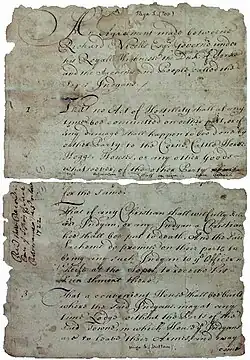 Page 1 (No.)
An Agreement made between
Richard Nicolls Esq. Governor under
his Royall Highnesse the Duke of Yorke
and the Sachems and People called the
Sopes Indyans
1 That no Act of Hostility shall at any
time bee committed on either part, or if
any damage shall happen to bee done by
either Party, to the Corne Cattle Horses
Hoggs Houses, or any other Goods
whatsoever of the other Party
for the same
That if any Christian shall wilfully kill
an Indyan, or any Indyan a Christian
hee shall bee put to death. And the said
Sachems do promise on their parts to
bring any such Indyan to the Officer in
Chiefe at the Sopes, to receive his
Punishment there
3 That a convenient House shall bee built
where the said Indyans may at any
time Lodge, without the Ports of the
said Towne, in which House the Indyans
are to leave their Armes, and may